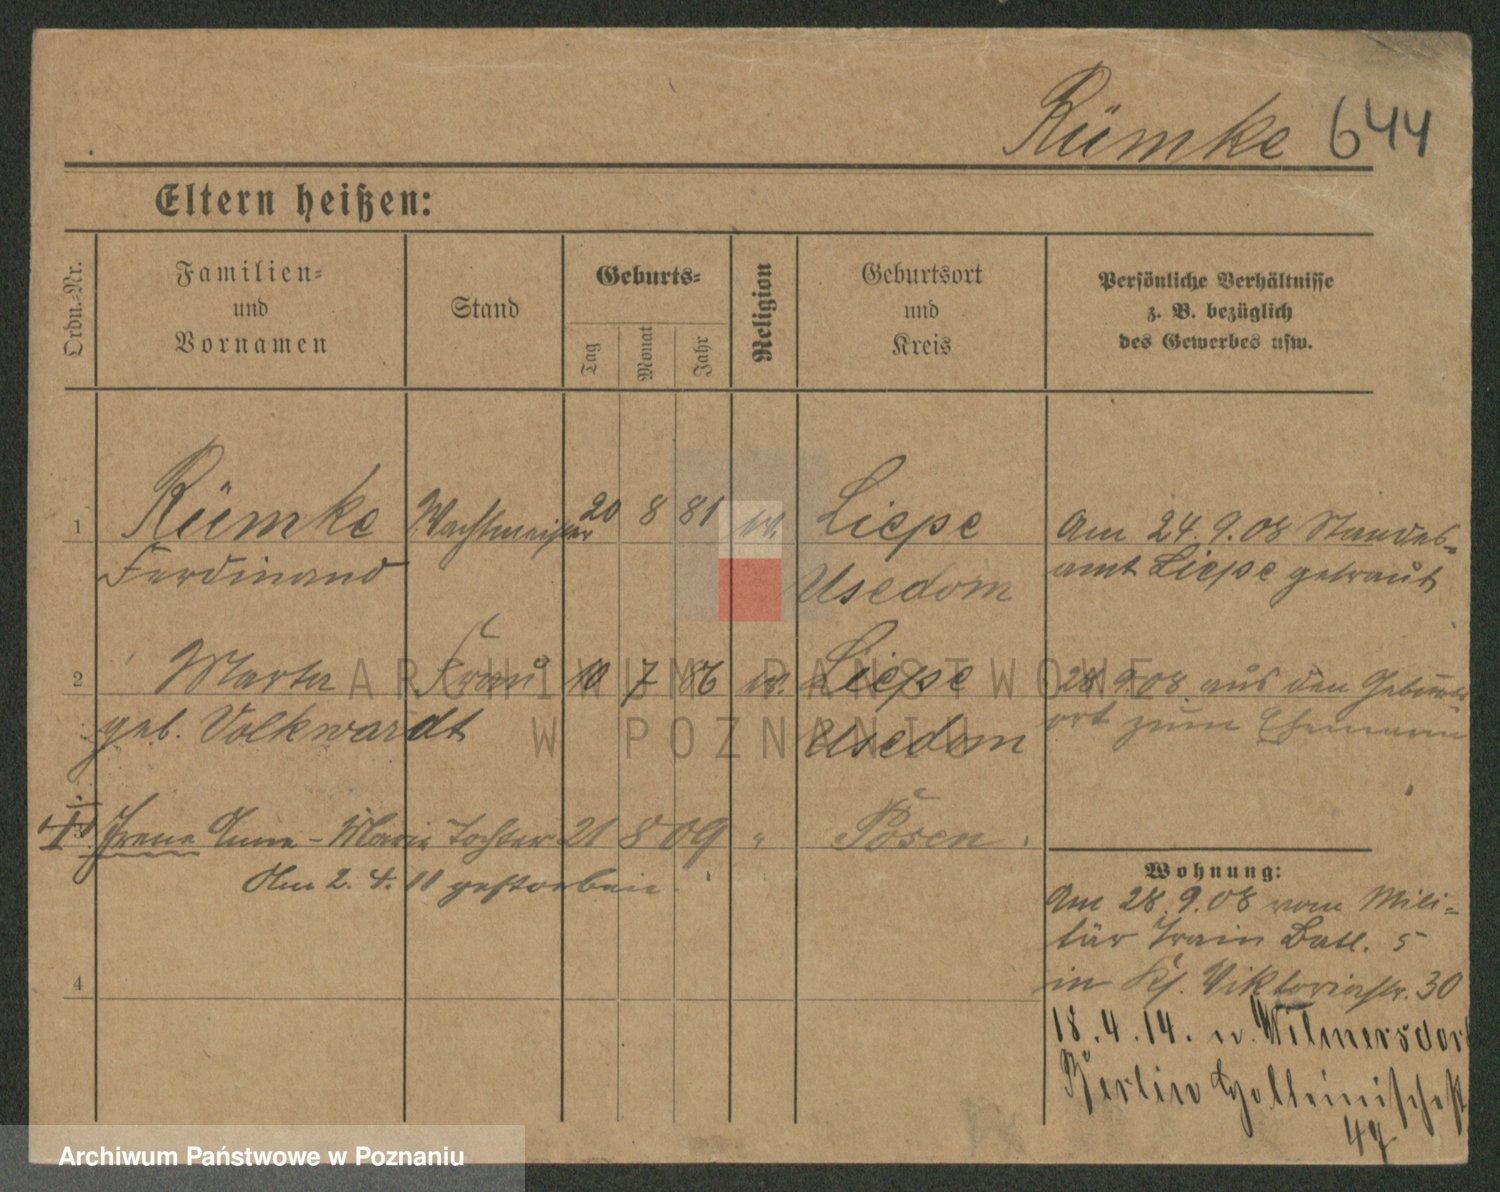 Rümke 644
Eltern heißen:
Ordn.-Nr.
Familien-
und
Vornamen
Stand
Geburts-
Tag
Monat
Jahr
Religion
Geburtsort
und
Kreis
Persönliche Verhältnisse
z. B. bezüglich
des Gewerbes usw.
1 Rümke Wachtmeister 20 8 81 ev. Liepe
Ferdinand Usedom
Am 24.9.08 Standes-
amt Liepe getraut
2 Marta Frau 10 7 86 ev. Liepe
geb. Volkwardt Usedom
28.9.08 aus den Geburts
ort zum Ehemann
3 Irene Anna-Marie Tochter 21 8 09 " Posen.
Am 2.4.11 gestorben.
4
Wohnung:
Am 28.9.08 vom Mili-
tär Train Batl. 5
in Viktoriastr. 30
18.4.14. n. Wilmersdorf
Berlin
49
ARCHIWUM PAŃSTWOWE
W POZNANIU
Archiwum Państwowe w Poznaniu